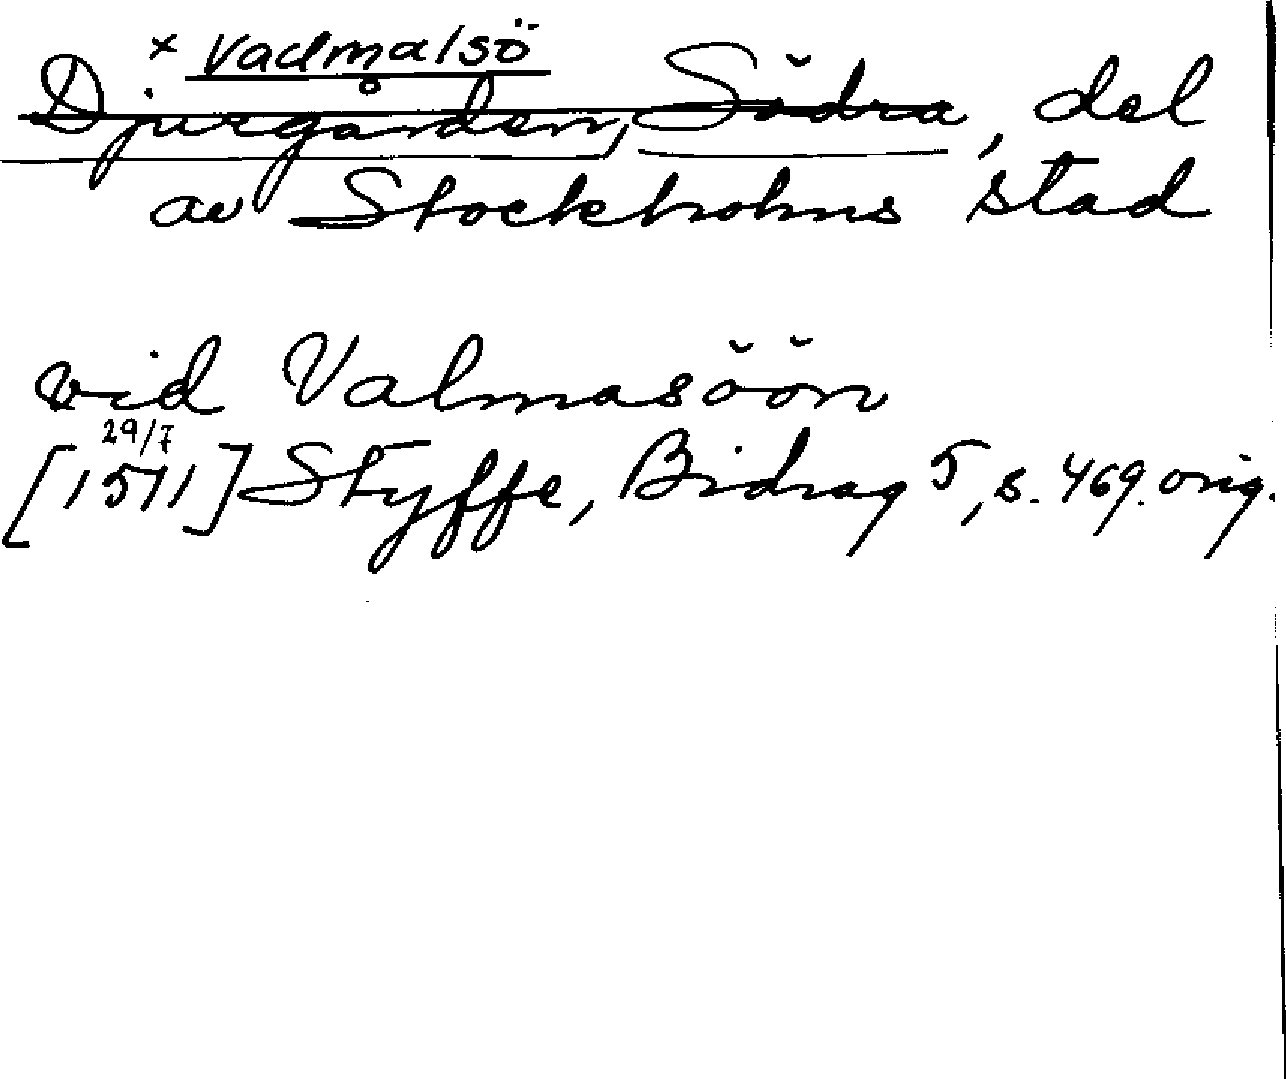 × Vadmalsö
Djurgården, Södra, del
av Stockholms stad
vid Valmasöön
29/7
[1511] Styffe, Bidrag 5, s. 469. orig.